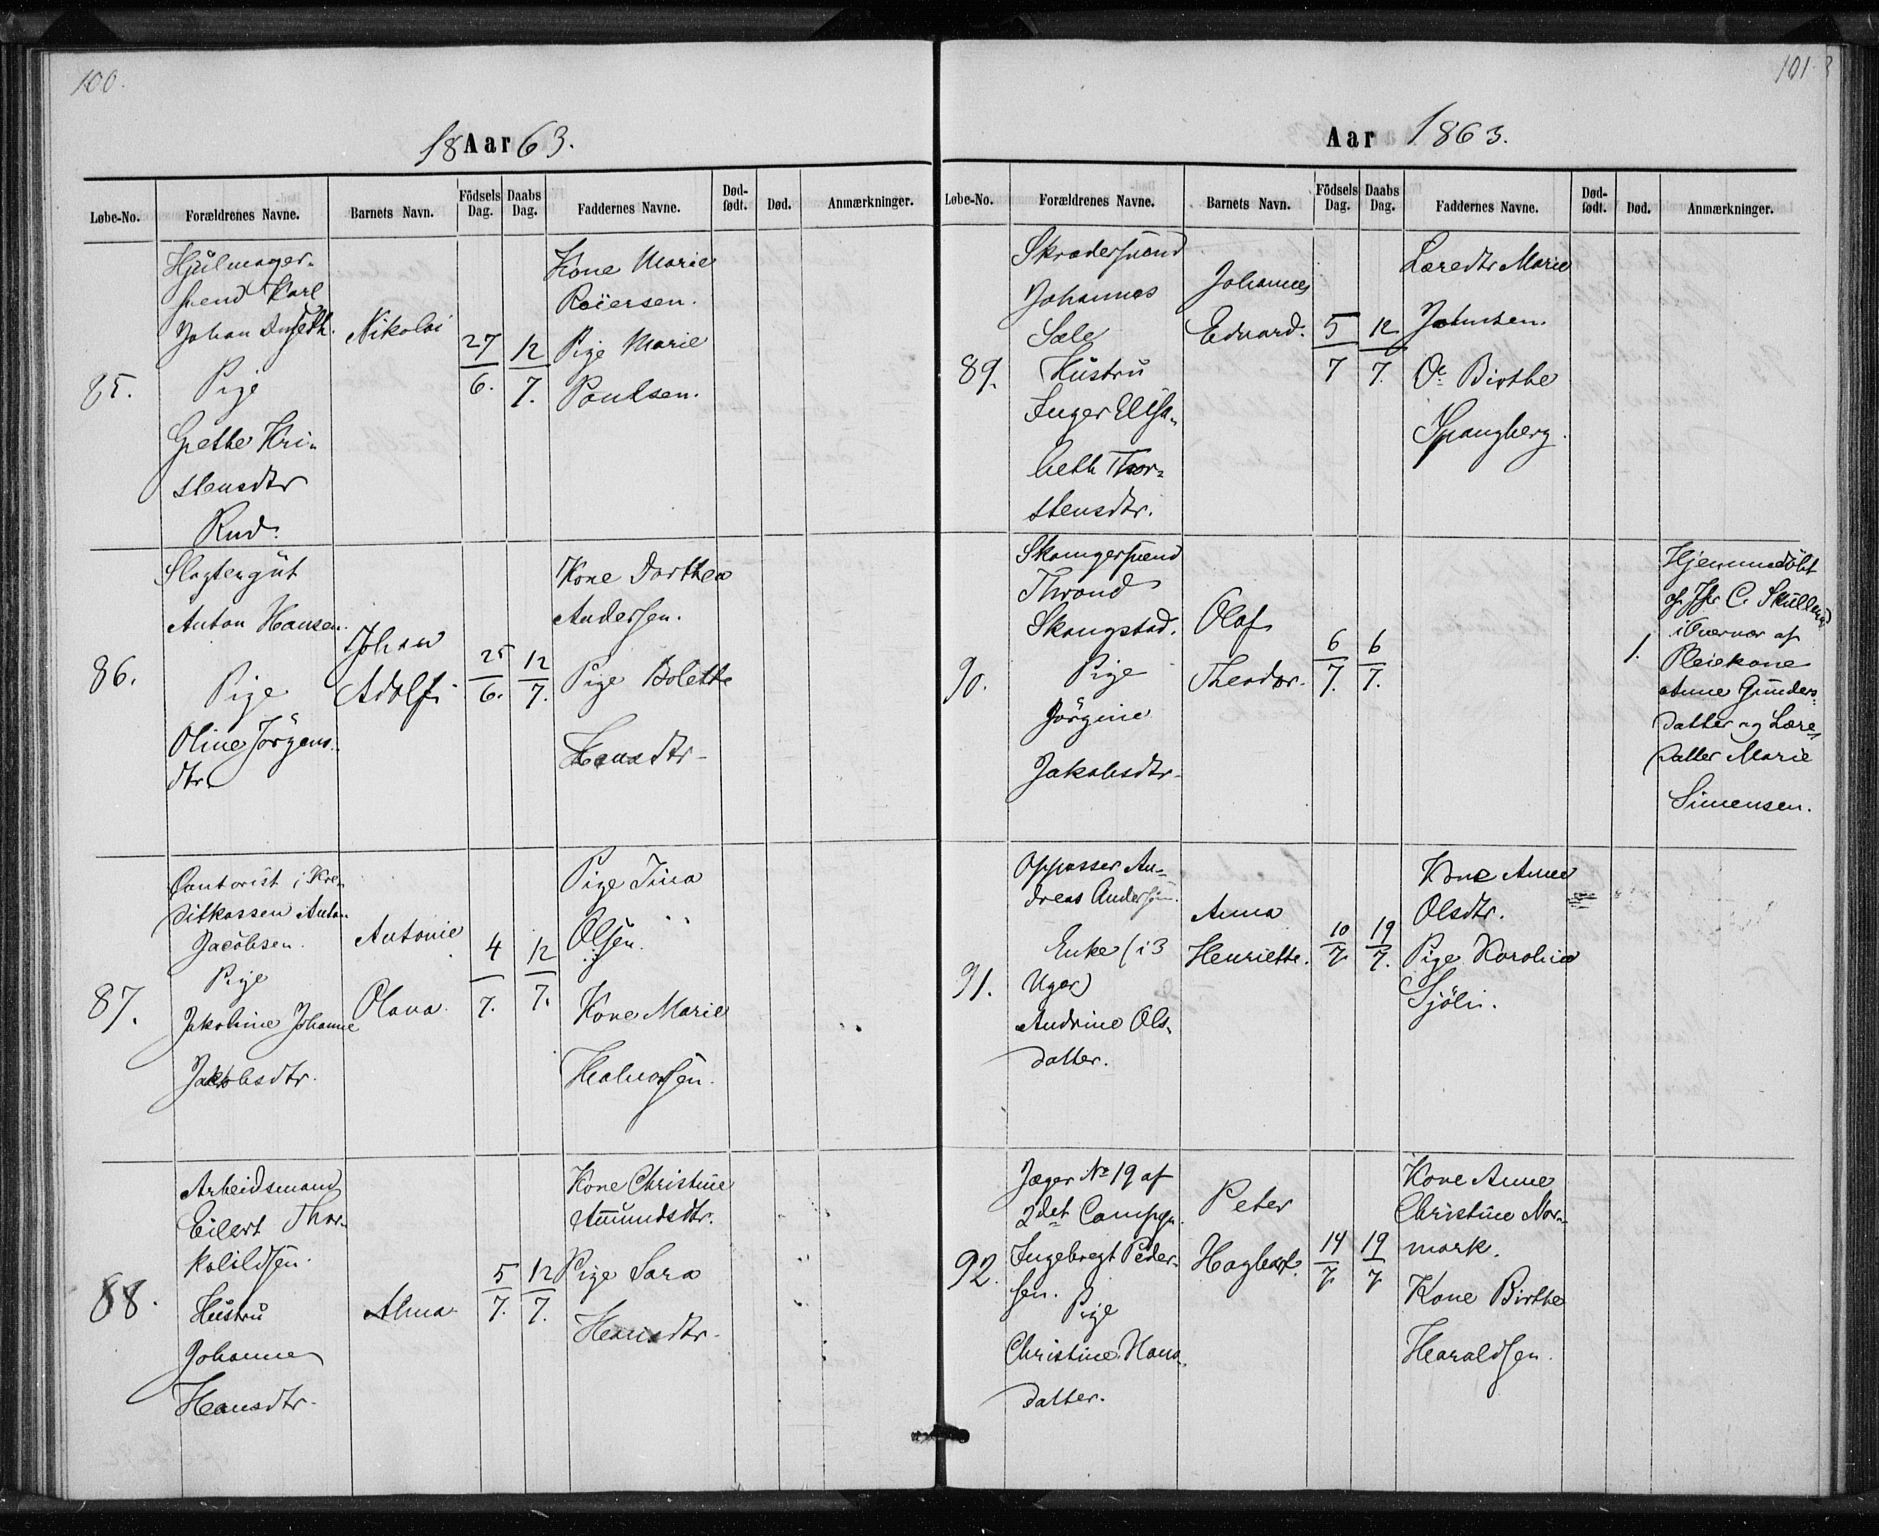 100.
18 Aar 63.
Løbe-No. Forældrenes Navne. Barnets Navn. Födsels Dag. Daabs Dag. Faddernes Navne. Død-født. Død. Anmærkninger.
85.
Hjulmager-
svend Karl
Johan
Pige
Grethe Kri-
stensdtr
Rud.
Nikolai
27/6. 12/7.
Kone Marie
Reiersen.
Pige Marie
Poulsen.
86.
Slagtergut
Anton Hansen.
Pige
Oline Jörgens-
dtr
Johan
Adolf.
25/6. 12/7.
Kone Dorthea
Andersen.
Pige Bolette
Hansdtr
87.
Contorist i Kre-
ditkassen Anton
Jacobsen.
Pige
Jakobine Johanne
Jakobsdtr.
Antonie
Olava.
4/7. 12/7.
Pige Tina
Olsen.
Kone Marie
Halvorsen.
88.
Arbeidsmand
Eilert Thor-
kelildsen.
Hustru
Johanne
Hansdtr.
Alma
5/7. 12/7.
Kone Christine
Amundsdtr.
Pige Sara
Hansdtr.
101
Aar 1863.
Løbe-No. Forældrenes Navne. Barnets Navn. Födsels Dag. Daabs Dag. Faddernes Navne. Død-født. Død. Anmærkninger.
89.
Skrædersvend
Johannes
Sale
Hustru
Inger Elisa-
beth Thor-
stensdtr.
Johannes
Edvard.
5/7 12/7.
Læredtr Marie
Johnsen.
Oc Birthe
Spangberg.
90.
Skomgersvend
Thrond
Skougstad.
Pige
Jörgine
Jakobsdtr.
Olaf
Theodor.
6/7. 6/7.
1.
Hjemmedöbt
af Jfr C.
i Overvær af
Pleiekone
Anne Gunders-
datter og Lære-
datter Marie
Simensen.
91.
Oppasser An-
dreas Andersen.
Enke (i 3
Uger)
Andrine Ols-
datter.
Anna
Henriette.
10/7. 19/7.
Kone Anne
Olsdtr.
Pige Karolina
Sjöli.
92.
Jæger No 19 af
2det Compgn.
Ingebregt Peder-
sen.
Pige
Christine Hans-
datter.
Peter
Hagbart.
14/7. 19/7
Kone Anne
Christine Nor-
mark.
Kone Birthe
Haraldsen.